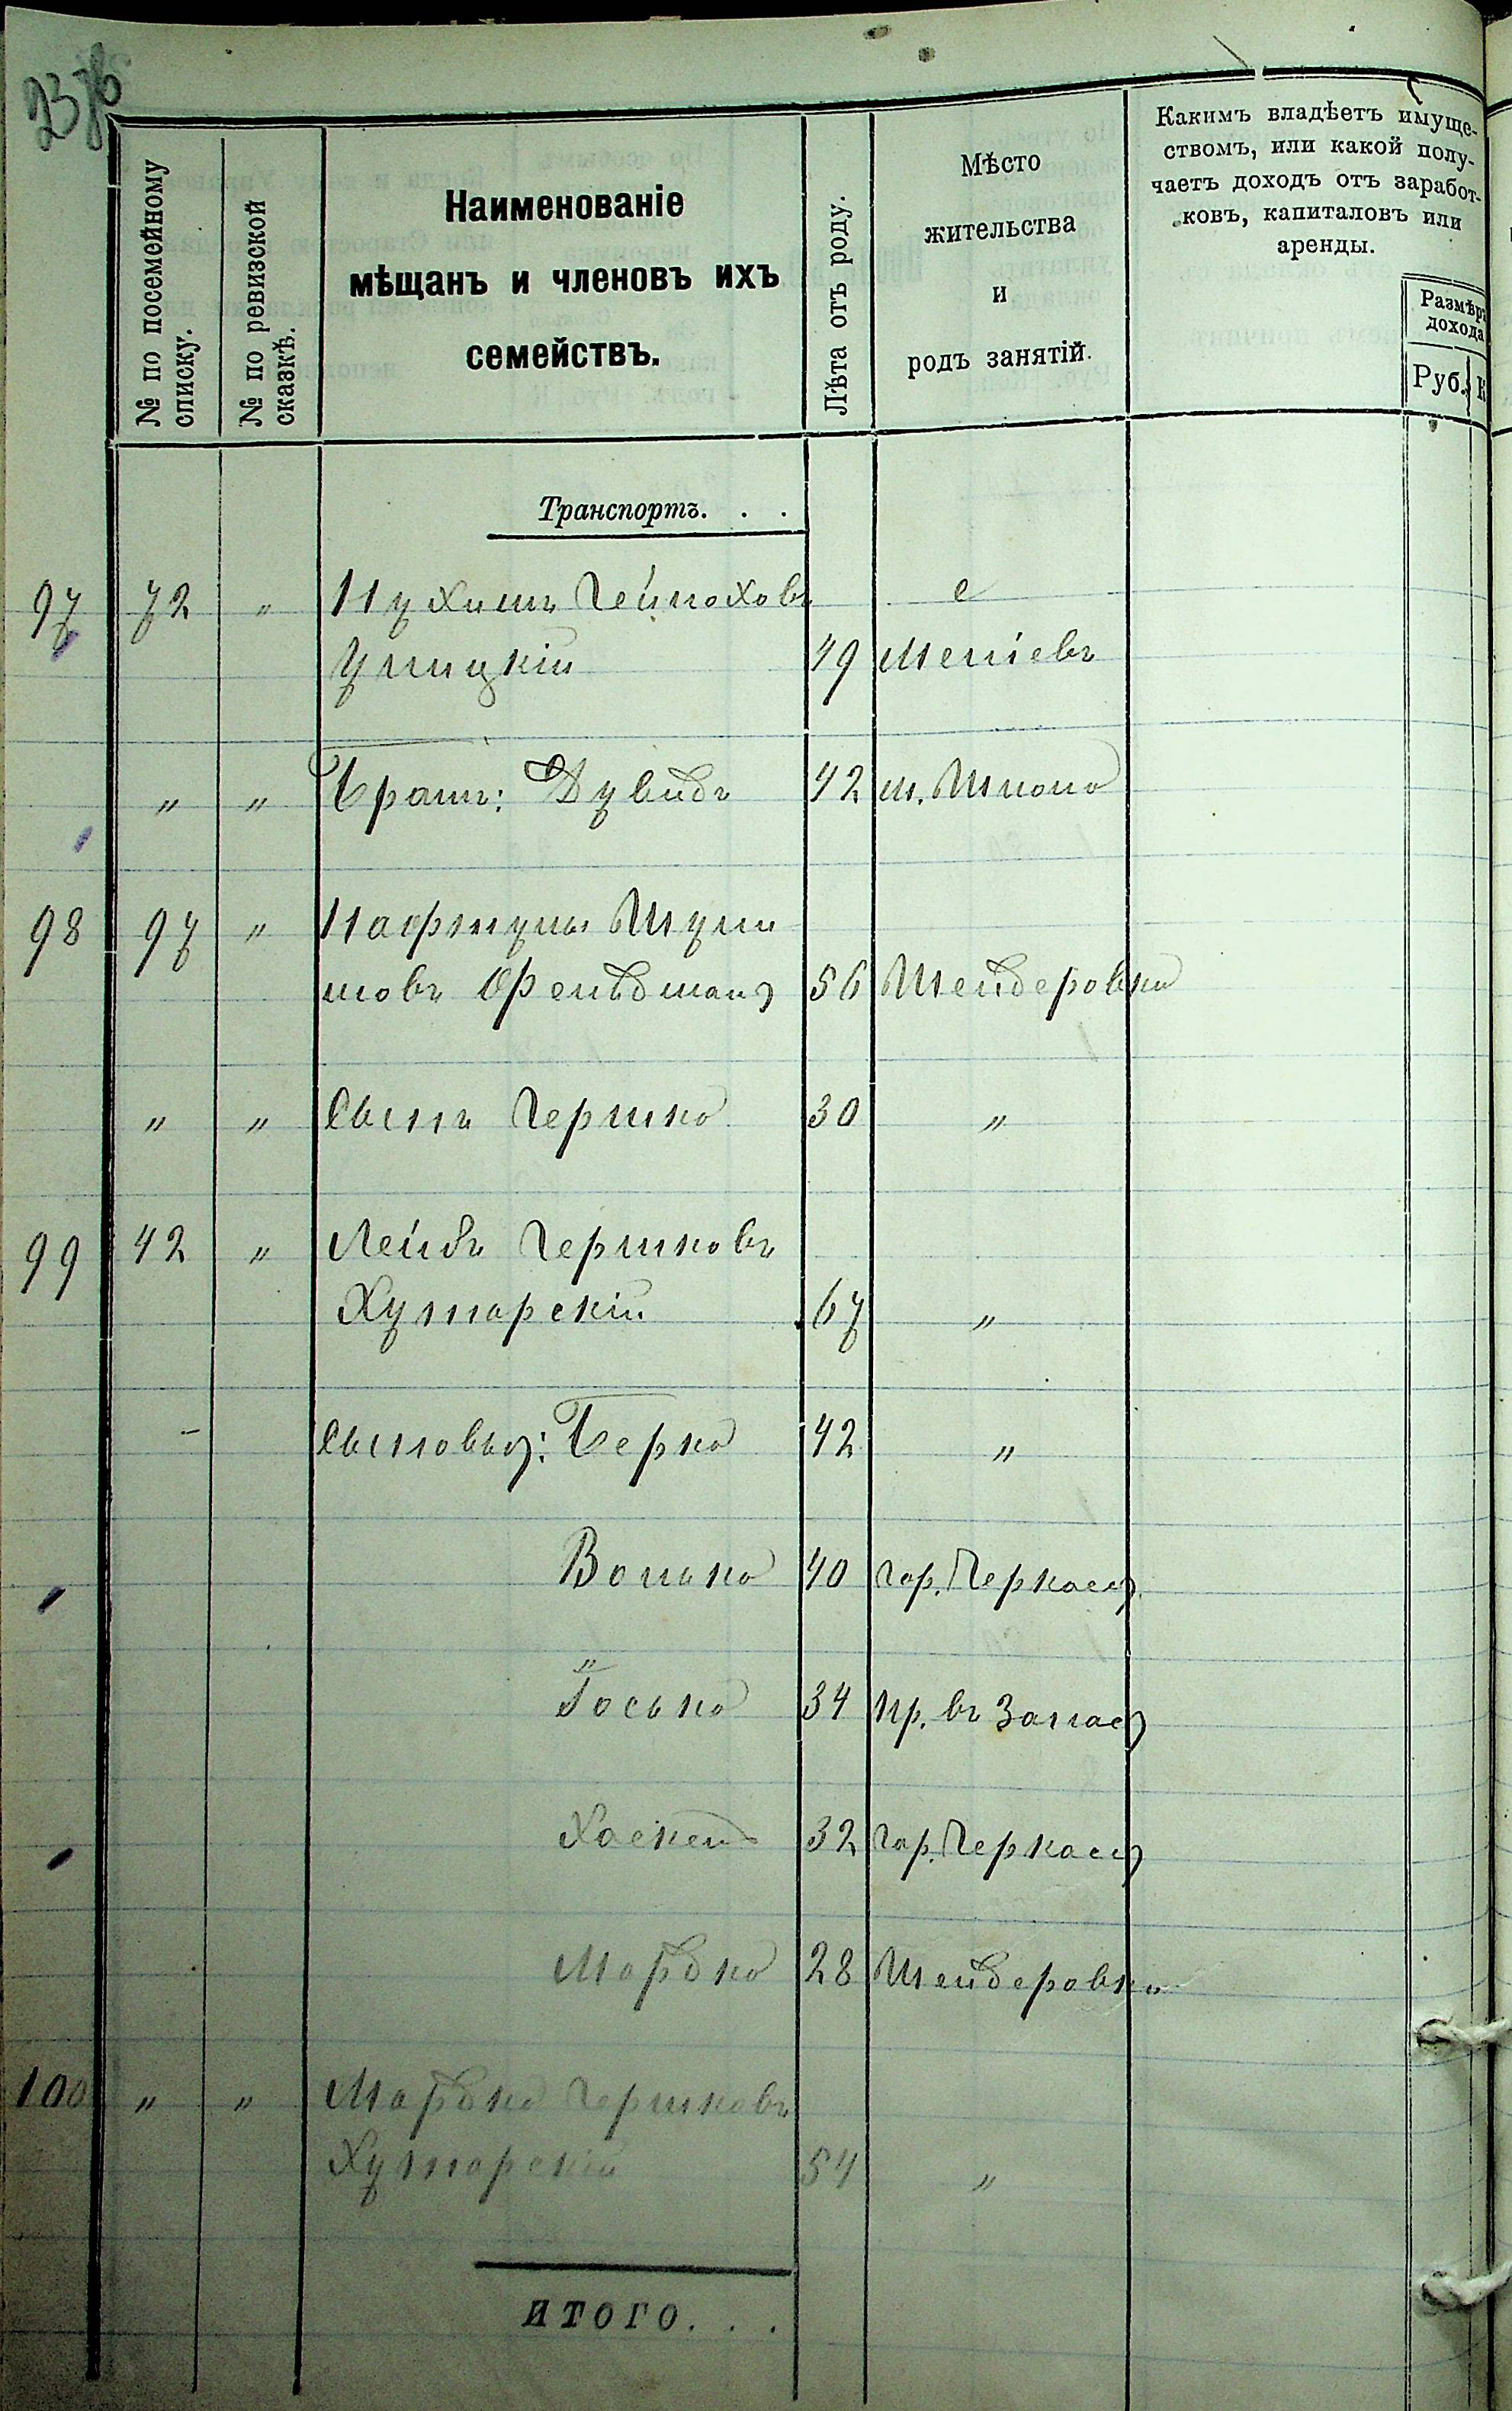 № по посемейному
списку.
№ по ревизской
сказкѣ.
Наименованіе
мѣщанъ и членовъ ихъ
семействъ.
Лѣта отъ роду.
Мѣсто
жительства
и
родъ занятій.
Какимъ владѣетъ имуще-
ствомъ, или какой полу-
чаетъ доходъ отъ заработ-
ковъ, капиталовъ или
аренды.
Размѣръ
дохода
Руб. К
Транспортъ. . .
97 72 " Нухимъ
49
" " Братъ: Дувидъ 42 м. Шпола
98 97 " Нафтула Шули
мовъ Фельдманъ 56 Шендеровка
" " Сынъ Гершко 30 "
99 42 " Лейбъ Гершковъ
Хуторскій 67 "
Сыновья: Берко 42 "
Волько 40 гор. Черкассы
Іосько 34 Пр. въ Запасъ
Хаскель 32 гор. Черкассы
Мордко 28 Шендеровка
100 " " Мордко Гершковъ
Хуторскій 54 "
ИТОГО. . .